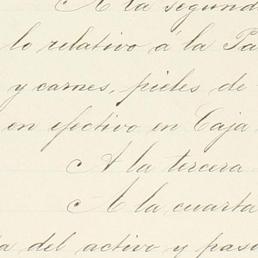 A la segund
lo relativo á la Pa
y carnes, pieles de
en efectivo en Caja
A la tercera
A la cuarta
a del activo y pas